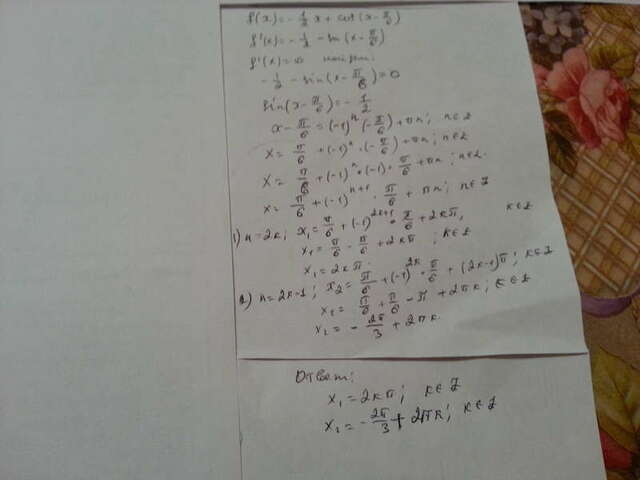 f(x) = -1/2 x + cos(x - π/6)
f'(x) = -1/2 - sin(x - π/6)
f'(x) = 0
-1/2 - sin(x - π/6) = 0
sin(x - π/6) = -1/2
x - π/6 = (-1)^n (-π/6) + πn; n∈Z
x = π/6 + (-1)^n · (-π/6) + πn; n∈Z
x = π/6 + (-1)^n · (-1) · π/6 + πn; n∈Z.
x = π/6 + (-1)^(n+1) · π/6 + πn; n∈Z
1) n = 2k; x₁ = π/6 + (-1)^(2k+1) · π/6 + 2kπ, k∈Z
x₁ = π/6 - π/6 + 2kπ; k∈Z
x₁ = 2kπ.
2) n = 2k-1; x₂ = π/6 + (-1)^(2k) · π/6 + (2k-1)π; k∈Z
x₂ = π/6 + π/6 - π + 2πk; k∈Z
x₂ = -2π/3 + 2πk.
Ответ:
x₁ = 2kπ; k∈Z
x₂ = -2π/3 + 2πk; k∈Z